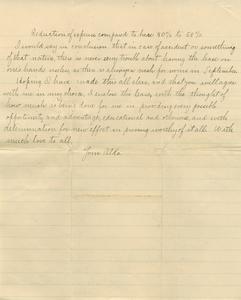 Reduction of expense compared to here 80% to 50%
I would say in conclusion that in case of accident or something
of that nature, there is never very trouble about having the lease on
one's hands unless as there is always rush for rooms in September.
Hoping I have made this all clear, and that you will agree
with me in my choice, I enclose the lease, with the thought of
how much is being done for me in providing every possible
opportunity and advantage, educational and otherwise, and with
determination for new effort in proving worthy of it all. With
much love to all,
Your Alda.